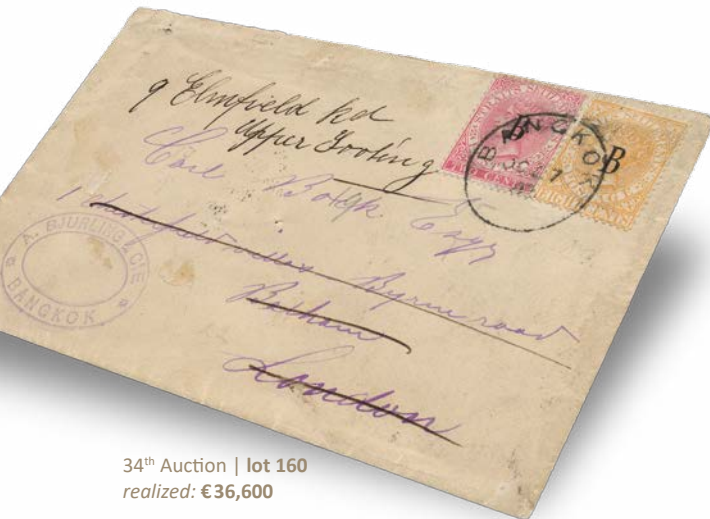 9 Elmfield Rd
Upper Tooting
Carl Bock Esqr
1 villas Byrne road
Balham
London
A. BJURLING & CIE
* BANGKOK *
BANGKOK
B
34th Auction | lot 160
realized: €36,600